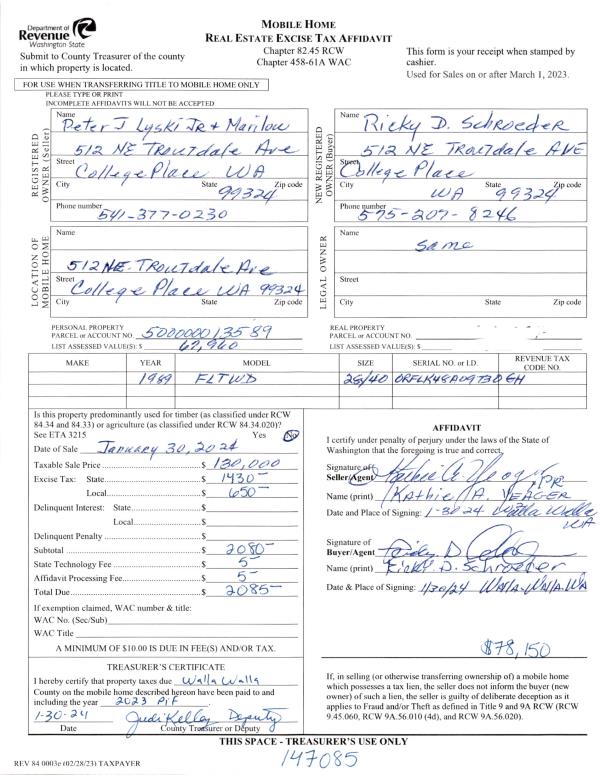 Department of
Revenue
Washington State
Submit to County Treasurer of the county
in which property is located.
MOBILE HOME
REAL ESTATE EXCISE TAX AFFIDAVIT
Chapter 82.45 RCW
Chapter 458-61A WAC
This form is your receipt when stamped by
cashier.
Used for Sales on or after March 1, 2023.
FOR USE WHEN TRANSFERRING TITLE TO MOBILE HOME ONLY
PLEASE TYPE OR PRINT
INCOMPLETE AFFIDAVITS WILL NOT BE ACCEPTED
REGISTERED
OWNER (Seller)
Name
Peter J Lyski Jr + Marilou
512 NE Troutdale Ave
Street
College Place WA
City State Zip code
99324
Phone number
541-377-0230
NEW REGISTERED
OWNER (Buyer)
Name
Ricky D. Schroeder
512 NE Troutdale AVE
Street
College Place
City State Zip code
WA 99324
Phone number
575-207-8246
LOCATION OF
MOBILE HOME
Name
512 NE. Troutdale Ave
Street
College Place WA 99324
City State Zip code
LEGAL OWNER
Name
same
Street
City State Zip code
PERSONAL PROPERTY
PARCEL or ACCOUNT NO. 500000013589
LIST ASSESSED VALUE(S): $ 62,960
REAL PROPERTY
PARCEL or ACCOUNT NO.
LIST ASSESSED VALUE(S): $
MAKE YEAR MODEL SIZE SERIAL NO. or I.D. REVENUE TAX
CODE NO.
1989 FLTWD 28/40 ORFLK48A09730GH
Is this property predominantly used for timber (as classified under RCW
84.34 and 84.33) or agriculture (as classified under RCW 84.34.020)?
See ETA 3215 Yes No
Date of Sale January 30, 2024
Taxable Sale Price $ 130,000
Excise Tax: State $ 1430-
Local $ 650-
Delinquent Interest: State $
Local $
Delinquent Penalty $
Subtotal $ 2080-
State Technology Fee $ 5-
Affidavit Processing Fee $ 5-
Total Due $ 2085-
If exemption claimed, WAC number & title:
WAC No. (Sec/Sub)
WAC Title
A MINIMUM OF $10.00 IS DUE IN FEE(S) AND/OR TAX.
AFFIDAVIT
I certify under penalty of perjury under the laws of the State of
Washington that the foregoing is true and correct.
Signature of
Seller/Agent Kathie A. Yeager, PR
Name (print) Kathie A. YEAGER
Date and Place of Signing: 1-30 24 Walla Walla
WA
Signature of
Buyer/Agent
Name (print) Ricky D. Schroeder
Date & Place of Signing: 1/30/24 WAllA. WAllA. WA
$78,150
TREASURER'S CERTIFICATE
I hereby certify that property taxes due Walla Walla
County on the mobile home described hereon have been paid to and
including the year 2023 Pif
1-30-24 Judi Kelley Deputy
Date County Treasurer or Deputy
If, in selling (or otherwise transferring ownership of) a mobile home
which possesses a tax lien, the seller does not inform the buyer (new
owner) of such a lien, the seller is guilty of deliberate deception as it
applies to Fraud and/or Theft as defined in Title 9 and 9A RCW (RCW
9.45.060, RCW 9A.56.010 (4d), and RCW 9A.56.020).
THIS SPACE - TREASURER'S USE ONLY
147085
REV 84 0003e (02/28/23) TAXPAYER